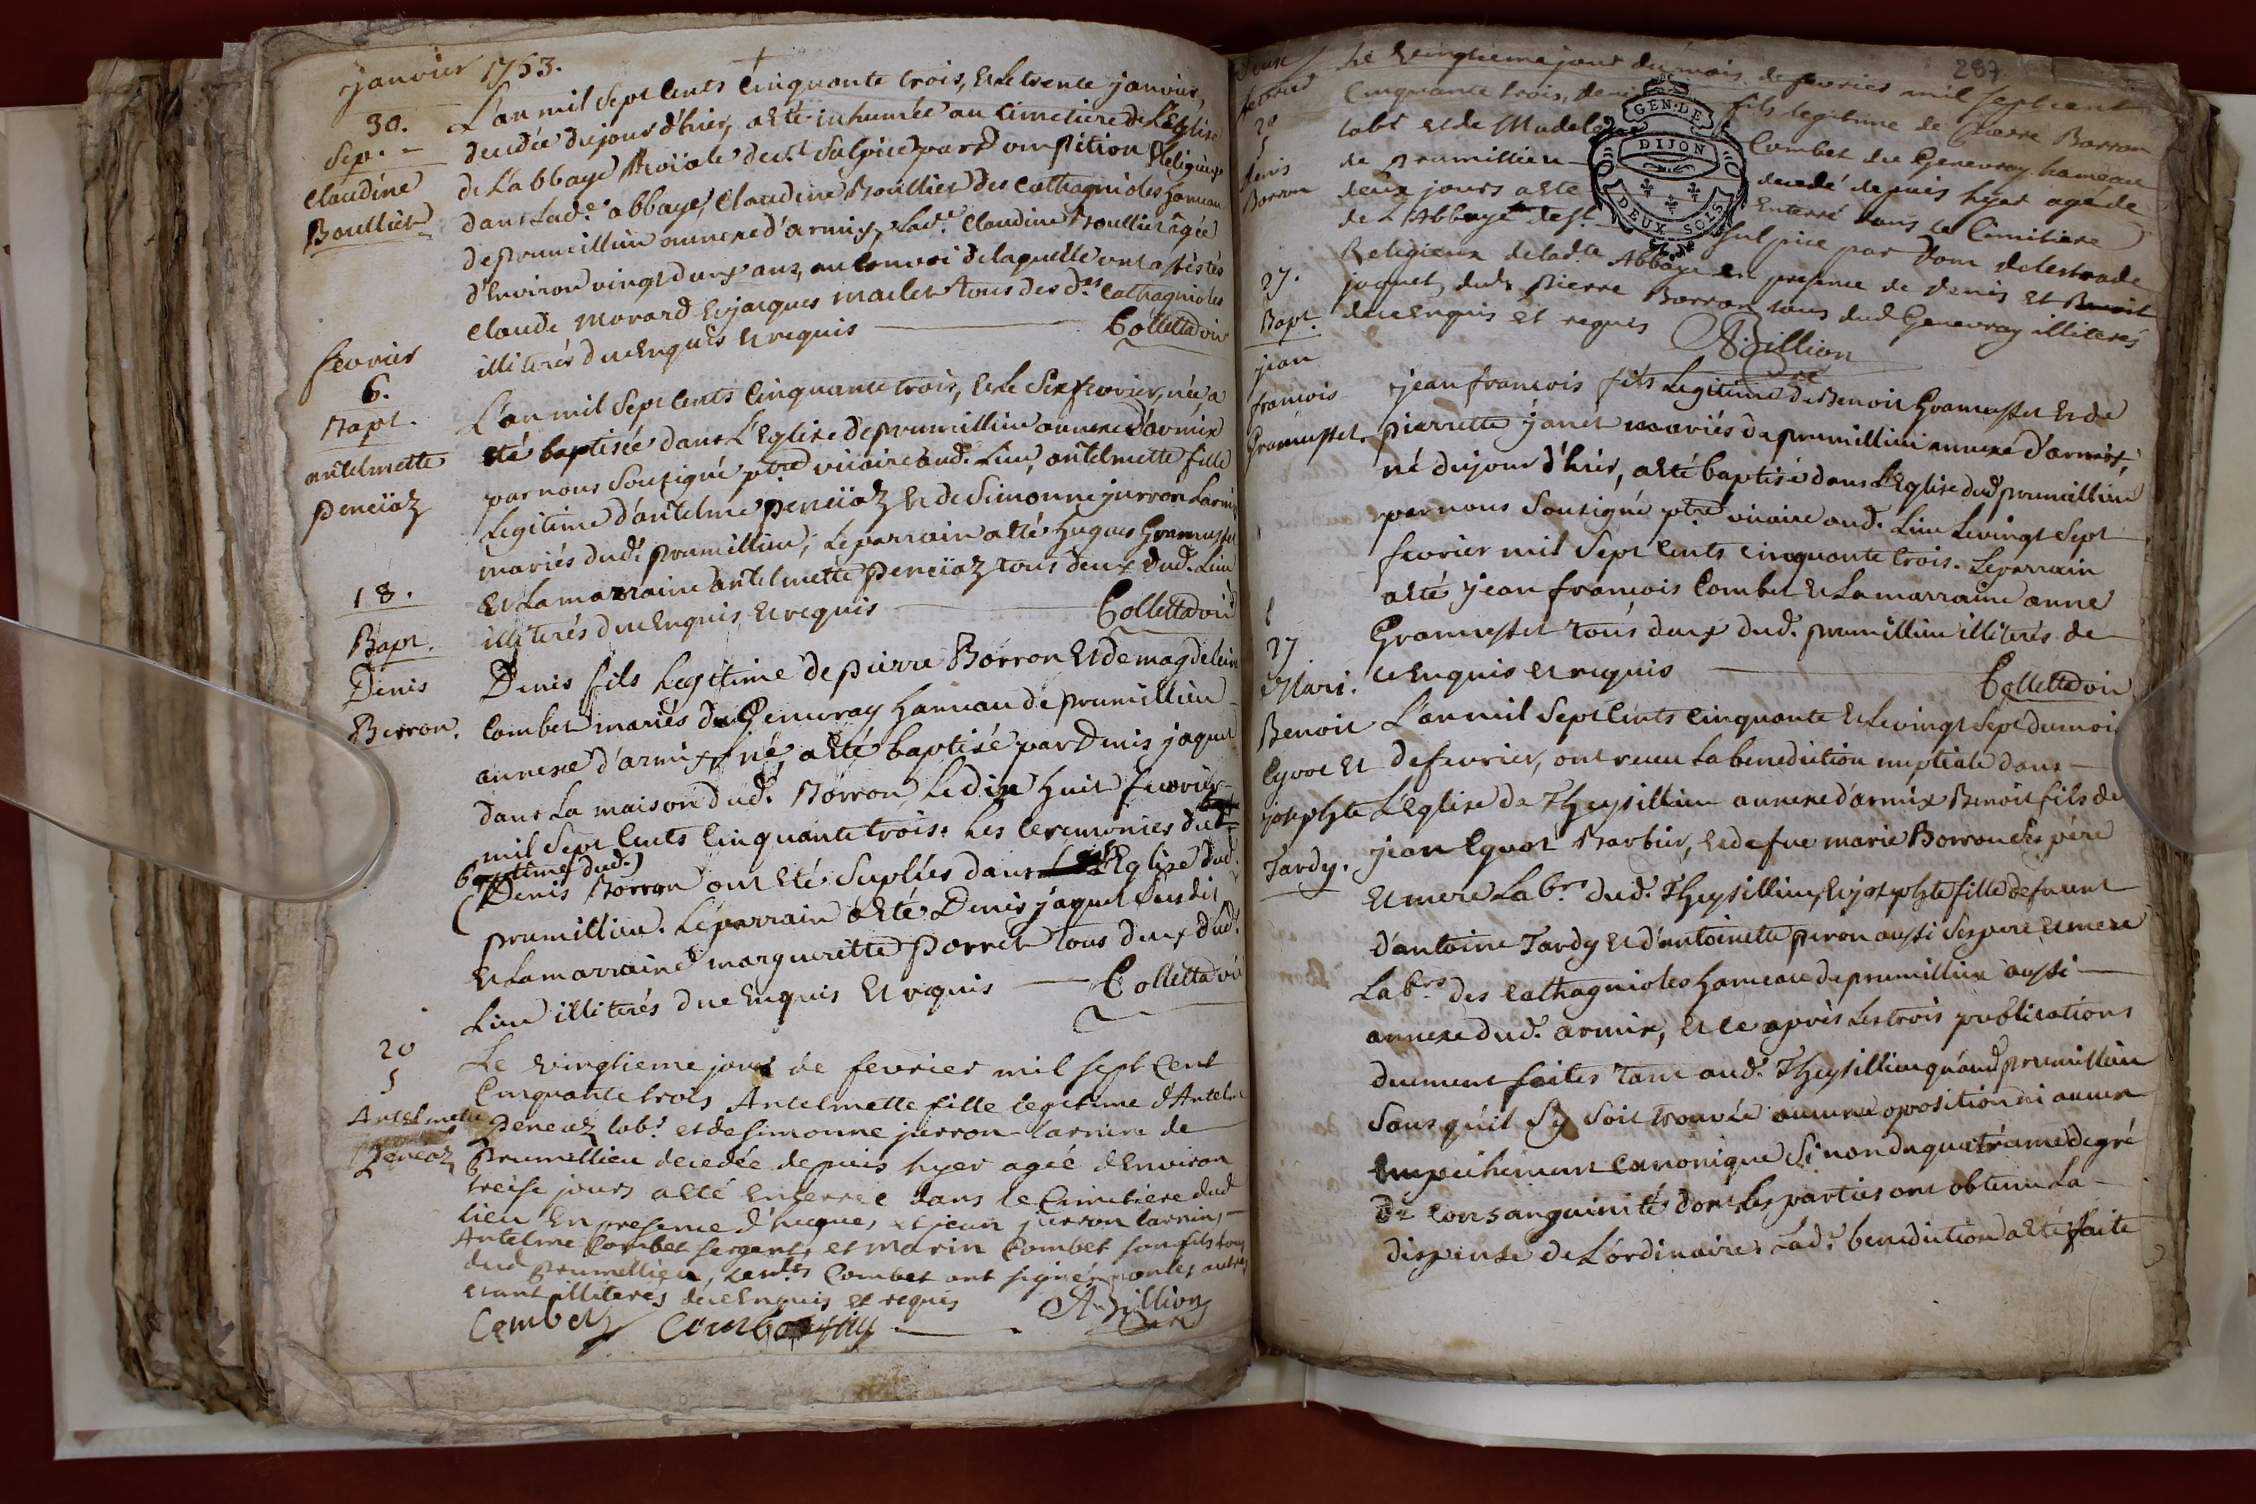 janvier 1753.
30.
Sep.
Claudine
Boullier
L'an mil Sept Cents Cinquante trois, Et le trente janvier,
decedée du jour d'hier, a eté inhumée au Cimetiere de L'Eglise
de L'abbaye Roïale de St Sulpice par Religieux
dans Lade abbaye, Claudine Boullier des Cathagnioles hameau
de prumillieu annexe d'armix, Lade Claudine Boullier âgée
d'Environ vingt deux ans, au Convoi de laquelle ont assistés
Claude Morard Et jacques mailet tous des ds Cathagnioles
illiterés de ce Enquis Et requis Collettavoir
fevrier
6.
Bapt.
antelmette
peneïaz
L'an mil Sept Cents Cinquante trois, Et le Six fevrier, née, a
eté baptisée dans L'Eglise de prumillieu annexe d'armix
par nous Soussigné ptre vicaire aud. Lieu, antelmette fille
Legitime d'antelme peneïaz Et de Simonne jurron Larnin
mariés dud. prumillieu; Le parrain a eté hugues Gramusset
Et La marraine antelmette peneïaz tous deux dud. Lieu
illiterés de ce Enquis Et requis Collettavoir
18.
Bapt.
Denis
Borron.
Denis fils Legitime de pierre Borron Et de magdeleine
Combet mariés du Genevray hameau de prumillieu
annexe d'armix né, a eté baptisé par Denis jaquet
dans La maison dud. Borron, Le dix huit fevrier
mil Sept Cents Cinquante trois: Les Ceremonies du
baptême dud.
Denis Borron ont Eté Supléés dans L'Eglise dud.
prumillieu. Le parrain a Eté Denis jaquet Susdit
Et La marraine margueritte porret tous deux dud.
Lieu illiterés de ce Enquis Et requis Collettavoir
20
S
Antelmette
peneaz
Le vingtieme jour de fevrier mil sept Cent
Cinquante trois Antelmette fille legitime d'Antelme
peneaz labr. et de simonne jurron larnin de
prumillieu decedée depuis hyer ageé d'Environ
treise jours a eté Enterreé dans le Cimetiere dud
lieu En presence d'hugues et jean jurron larnin,
Antelme Combet sergent, et Marin Combet son fils tous
dud prumillieu, Combet ont signés non les autres
etant illiterés de ce Enquis et requis A. Billion
Combet Combet fils
287
fevrier
20
S
Denis
Borron
Le vingtieme jour du mois de fevrier mil sept cent
Cinquante trois, denis fils legitime de Pierre Borron
labr et de Madeleine Combet du Genevray hameau
de prumillieu decedé depuis hyer agé de
deux jours a eté Enterré dans le Cimitiere
de L'Abbaye de St Sulpice par Dom delestrade
Religieux de lad.te Abbaye en presence de denis et Benoit
jaquet, dud. Pierre Borron tous dud Genevray illiterés
de ce Enquis et requis A. Billion
GEN. DE
DIJON
DEUX SOLS
27.
Bapt.
jean
francois
Gramusset
jean francois fils Legitime de Benoit Gramusset Et de
pierrette janet mariés de prumillieu annexe d'armix,
né du jour d'hier, a eté baptisé dans L'Eglise dud prumillieu
par nous Soussigné ptre vicaire aud. Lieu Le vingt Sept
fevrier mil Sept Cents cinquante trois. Le parrain
a eté jean francois Combet Et La marraine anne
Gramusset tous deux dud. prumillieu illiterés de
ce Enquis et requis Collettavoir
27
Mari.
Benoit
Eyvot Et
josephte
Tardy.
L'an mil Sept Cents Cinquante Et Le vingt Sept du moi
de fevrier, ont receu La benediction nuptiale dans
L'Eglise de Theysillieu annexe d'armix Benoit fils de
jean Barbier, Et de fue marie Borron Ses père
Et mere Labrs dud. Theysillieu, Et josephte fille de feu
d'antoine Tardy Et d'antoinette peron aussi Ses pere et mere
Labrs des Cathagnioles hameau de prumillieu aussi
annexe dud. armix, Et ce après Les trois publications
deument faites Tant aud. Theysillieu qu'aud prumillieu
Sans qu'il S'y Soit trouvée aucune oposition ni aucun
Empechement Canonique Si non du quatriéme degré
de Consanguinité dont Les parties ont obtenu La
dispense de L'ordinaire. Lad. benediction a eté faite